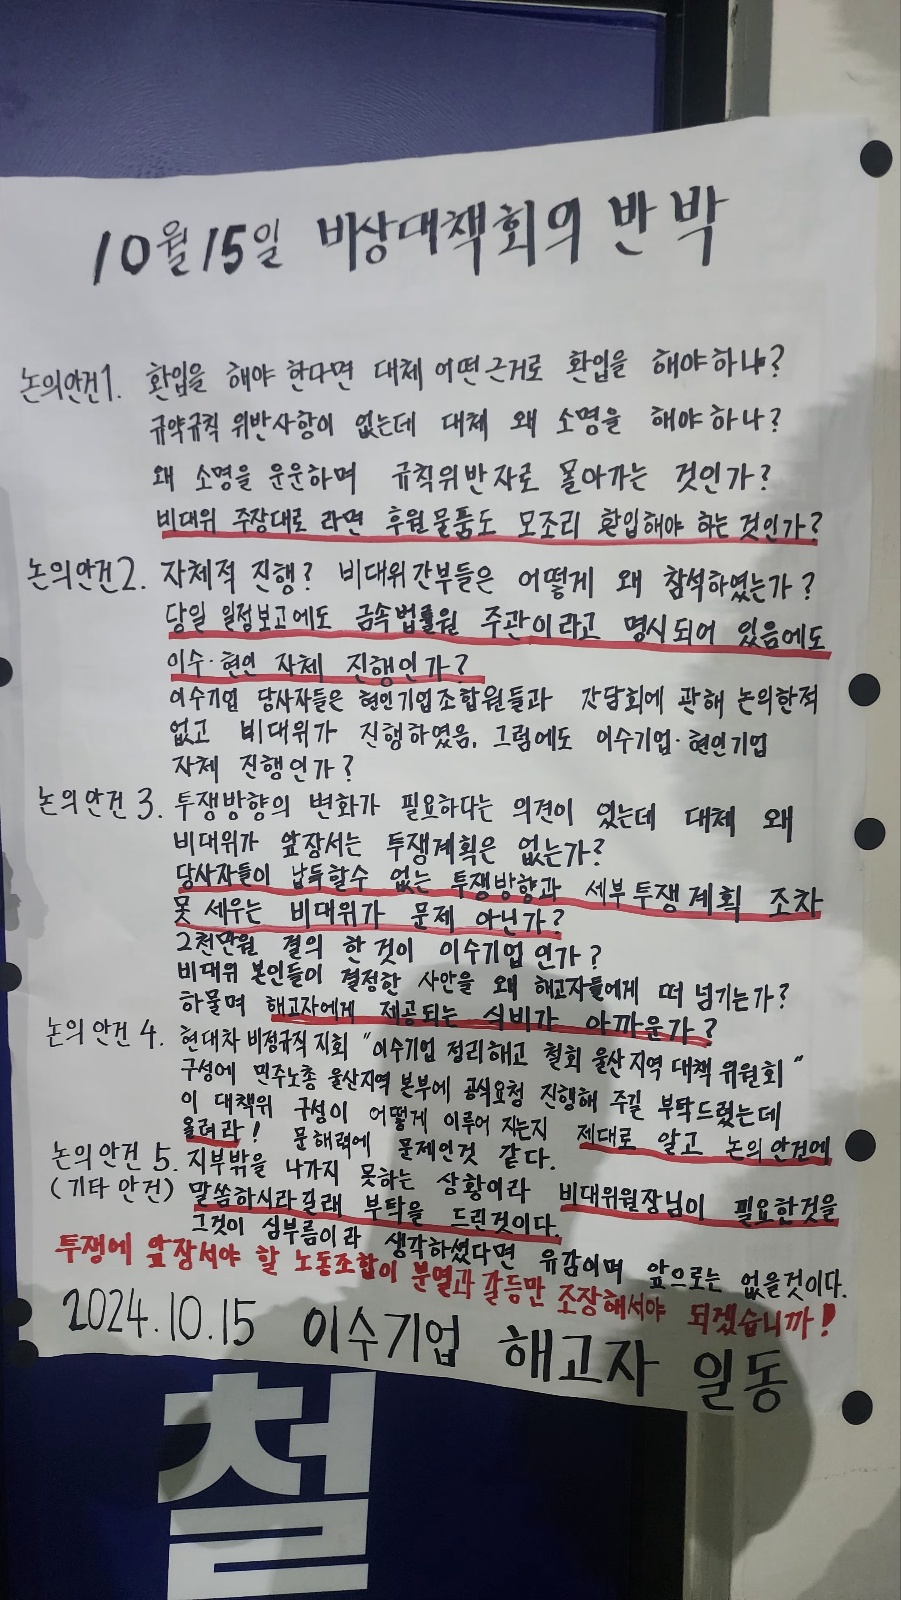 10월 15일 비상대책회의 반박
논의안건1. 환입을 해야 한다면 대체 어떤 근거로 환입을 해야 하나?
규약규칙 위반사항이 없는데 대체 왜 소명을 해야 하나?
왜 소명을 운운하며 규칙위반자로 몰아가는 것인가?
비대위 주장대로 라면 후원물품도 모조리 환입해야 하는 것인가?
논의안건2. 자체적 진행? 비대위간부들은 어떻게 왜 참석하였는가?
당일 일정보고에도 금속법률원 주관이라고 명시되어 있음에도
이수·현인 자체 진행인가?
이수기업 당사자들은 현인기업조합원들과 간담회에 관해 논의한적
없고 비대위가 진행하였음. 그럼에도 이수기업·현인기업
자체 진행인가?
논의안건 3. 투쟁방향의 변화가 필요하다는 의견이 있는데 대체 왜
비대위가 앞장서는 투쟁계획은 없는가?
당사자들이 납득할수 없는 투쟁방향과 세부투쟁계획 조차
못 세우는 비대위가 문제 아닌가?
2천만원 결의 한것이 이수기업인가?
비대위 본인들이 결정한 사안을 왜 해고자들에게 떠 넘기는가?
하물며 해고자에게 제공되는 식비가 아까운가?
논의 안건 4. 현대차 비정규직 지회 "이수기업 정리해고 철회 울산지역 대책 위원회"
구성에 민주노총 울산지역 본부에 공식요청 진행해 주길 부탁드렸는데
이 대책위 구성이 어떻게 이루어 지는지 제대로 알고 논의 안건에
올려라! 문해력에 문제인것 같다.
논의안건 5. 지부밖을 나가지 못하는 상황이라 비대위원장님이 필요한것을
(기타 안건) 말씀하시라길래 부탁을 드린것이다.
그것이 심부름이라 생각하셨다면 유감이며 앞으로는 없을것이다.
투쟁에 앞장서야 할 노동조합이 분열과 갈등만 조장해서야 되겠습니까!
2024.10.15 이수기업 해고자 일동
철